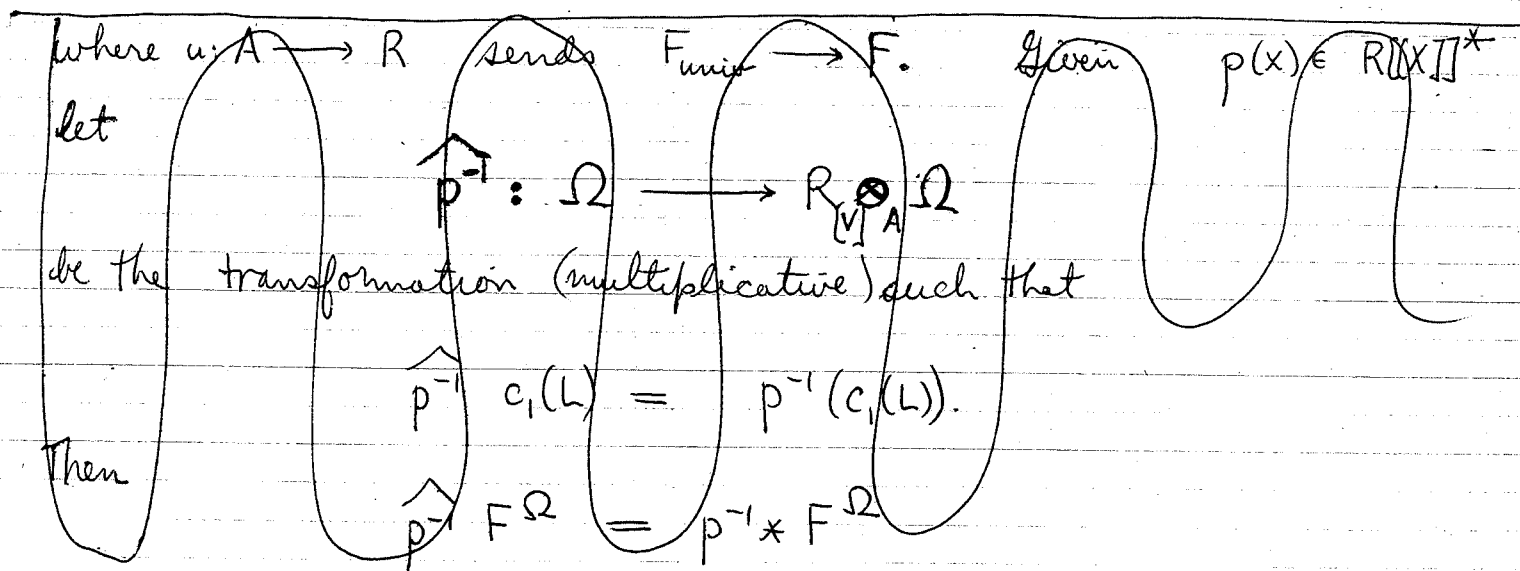 where u: A → R sends F_univ → F. Given p(X) ∈ R[[X]]*
let
\widehat{p^{-1}} : Ω → R_{[v]} ⊗_A Ω
be the transformation (multiplicative) such that
\widehat{p^{-1}} c_1(L) = p^{-1}(c_1(L)).
Then
\widehat{p^{-1}} F^Ω = p^{-1} * F^Ω